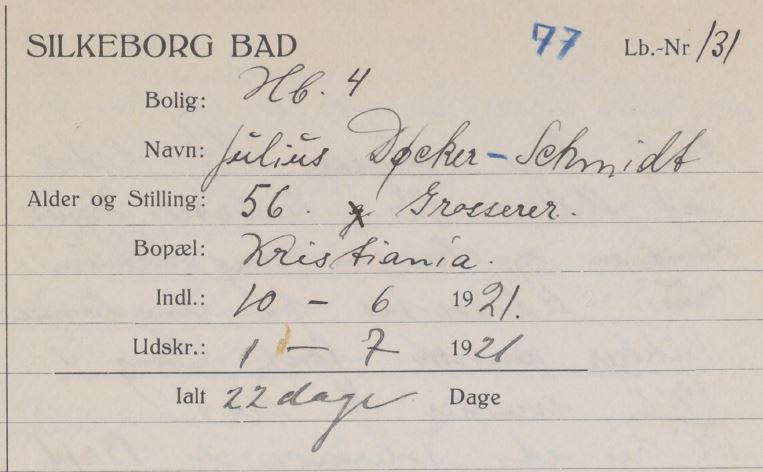 SILKEBORG BAD 77 Lb.-Nr 131
Bolig: Hb. 4
Navn: Julius Døcker-Schmidt
Alder og Stilling: 56. g Grosserer.
Bopæl: Kristiania.
Indl.: 10 - 6 1921.
Udskr.: 1 - 7 1921
Ialt 22 dage Dage